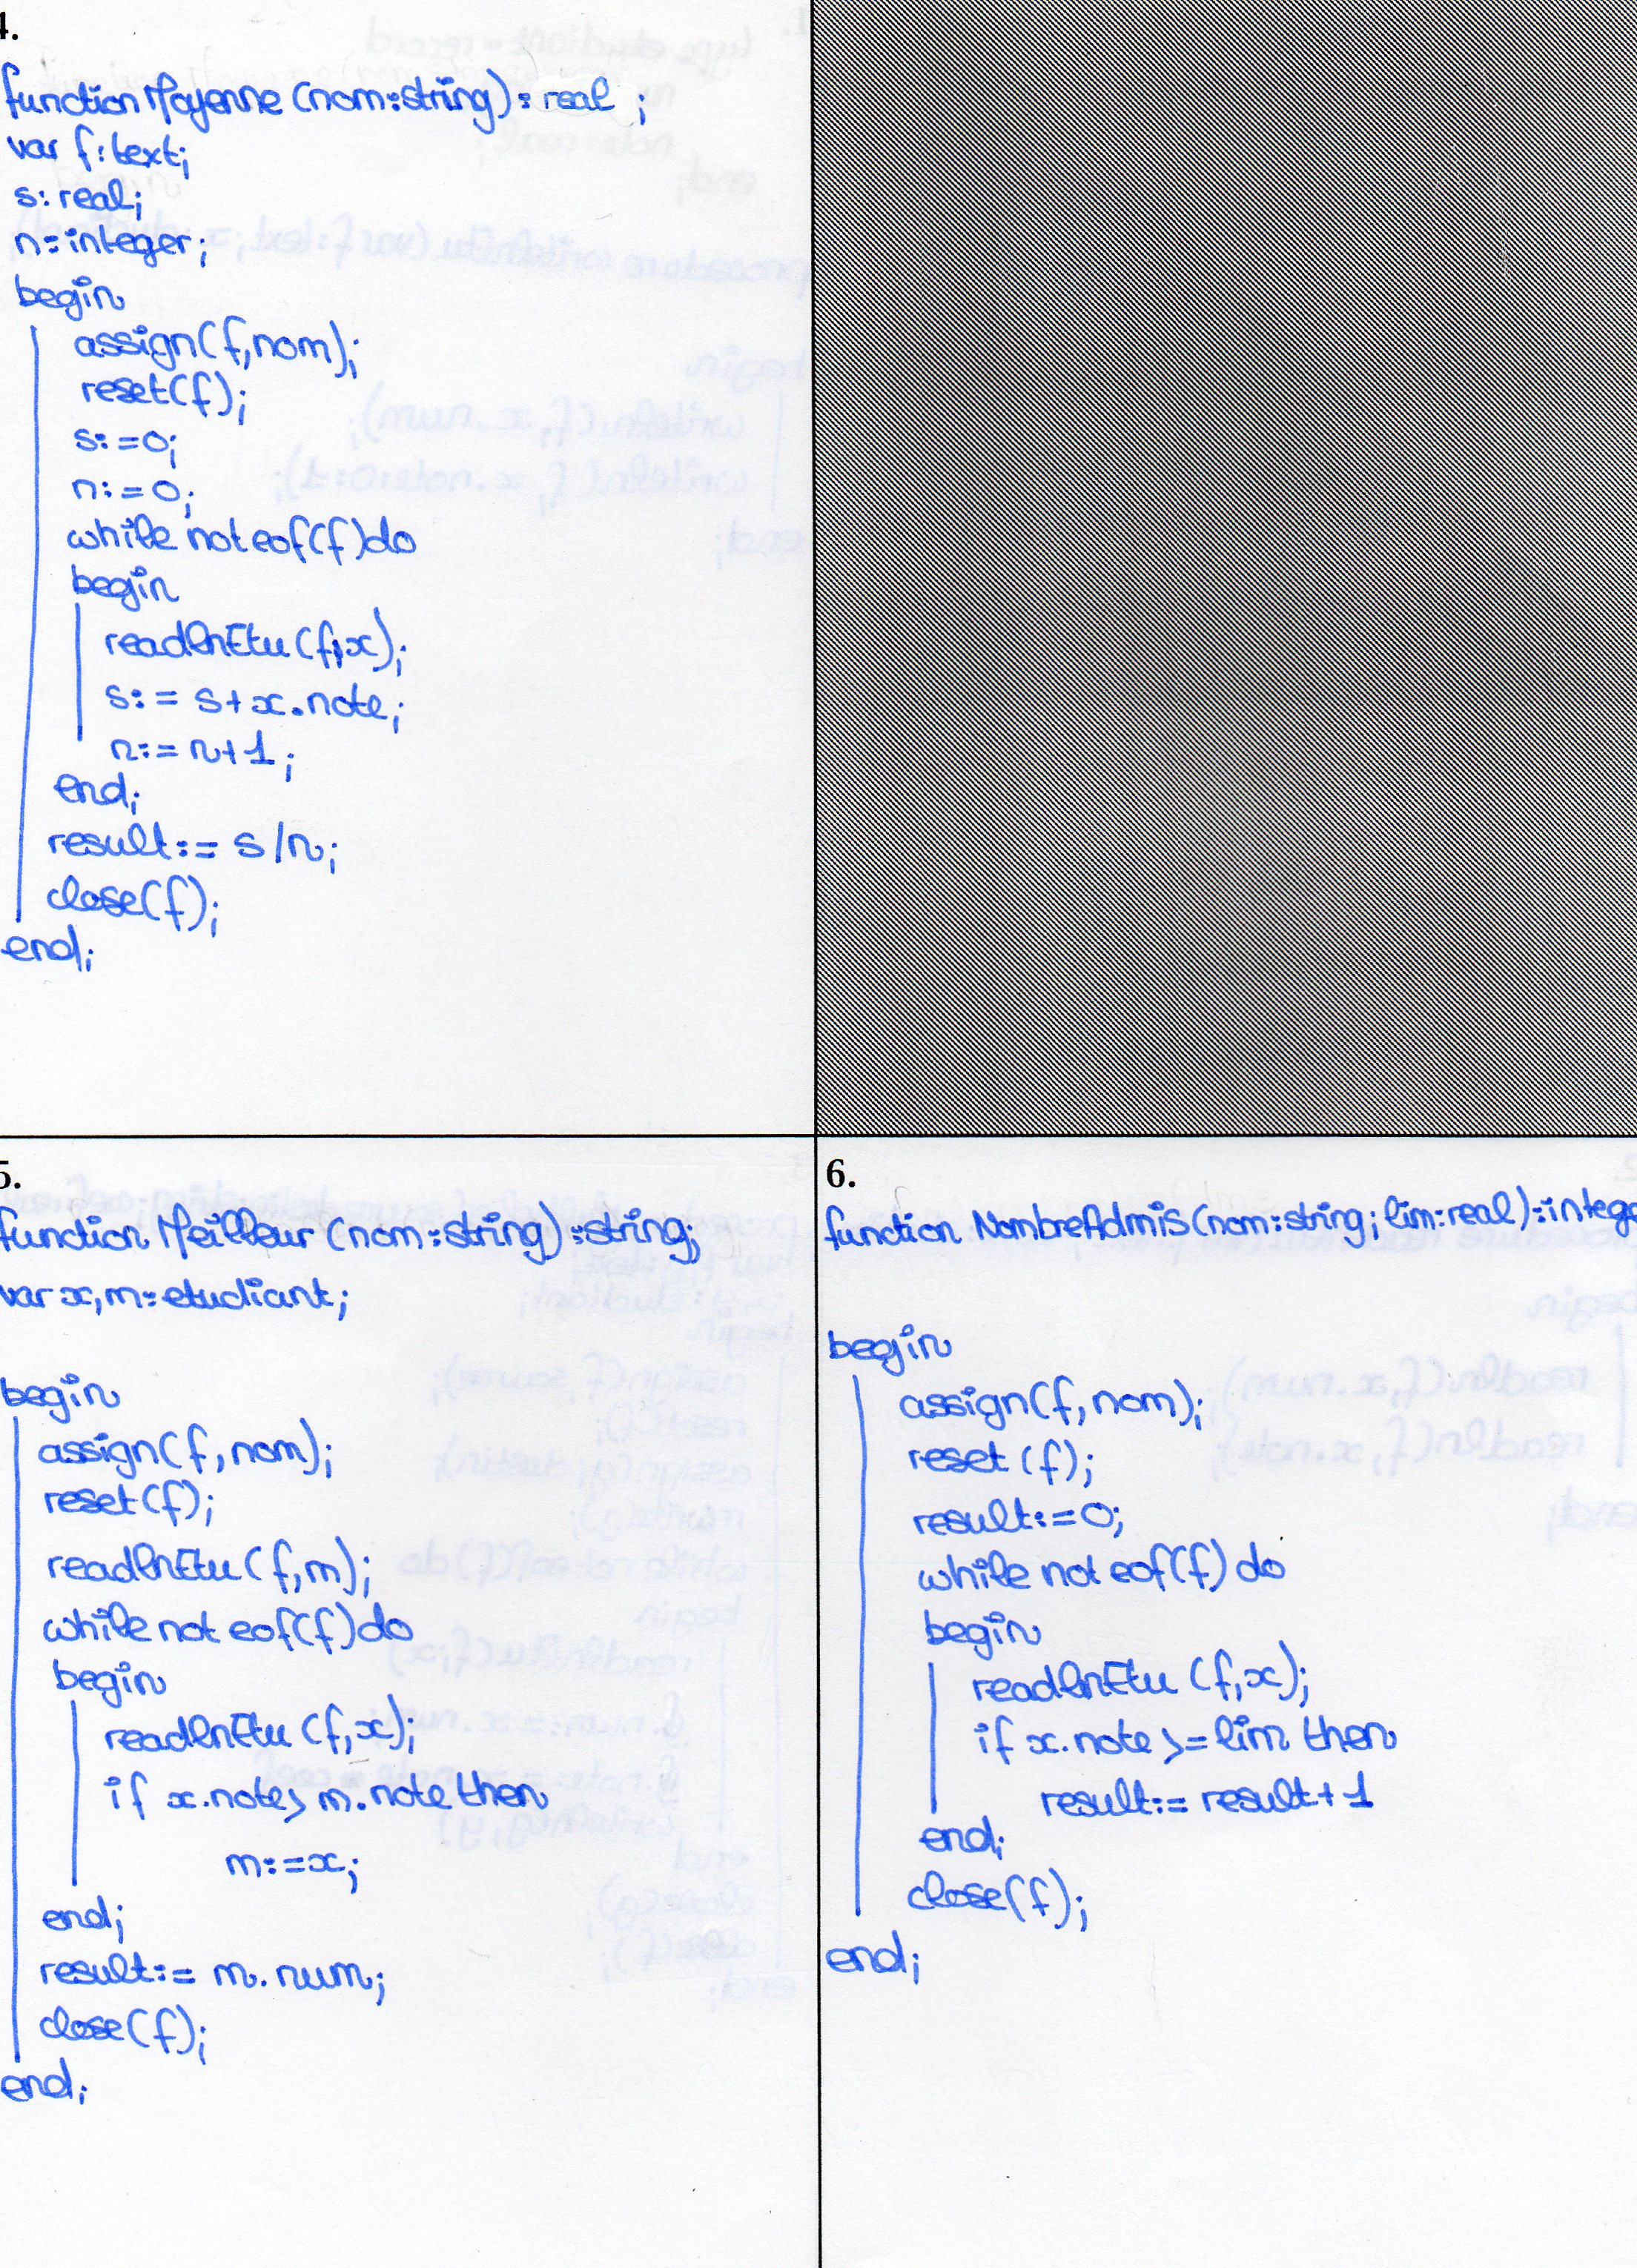 4.
function Moyenne (nom:string): real ;
var f:text;
s: real;
n:integer;
begin
assign(f,nom);
reset(f);
s:=0;
n:=0;
while not eof(f) do
begin
readlnEtu (f,x);
s:= s+x.note;
n:= n+1;
end;
result:= s/n;
close(f);
end;
5.
function Meilleur (nom:string):string;
var x,m:etudiant;
begin
assign(f,nom);
reset(f);
readlnEtu (f,m);
while not eof(f) do
begin
readlnEtu (f,x);
if x.note> m.note then
m:=x;
end;
result:= m.num;
close(f);
end;
6.
function NombreAdmis(nom:string; lim:real):intege
begin
assign(f,nom);
reset(f);
result:=0;
while not eof(f) do
begin
readlnEtu (f,x);
if x.note >=lim then
result:= result+1
end;
close(f);
end;